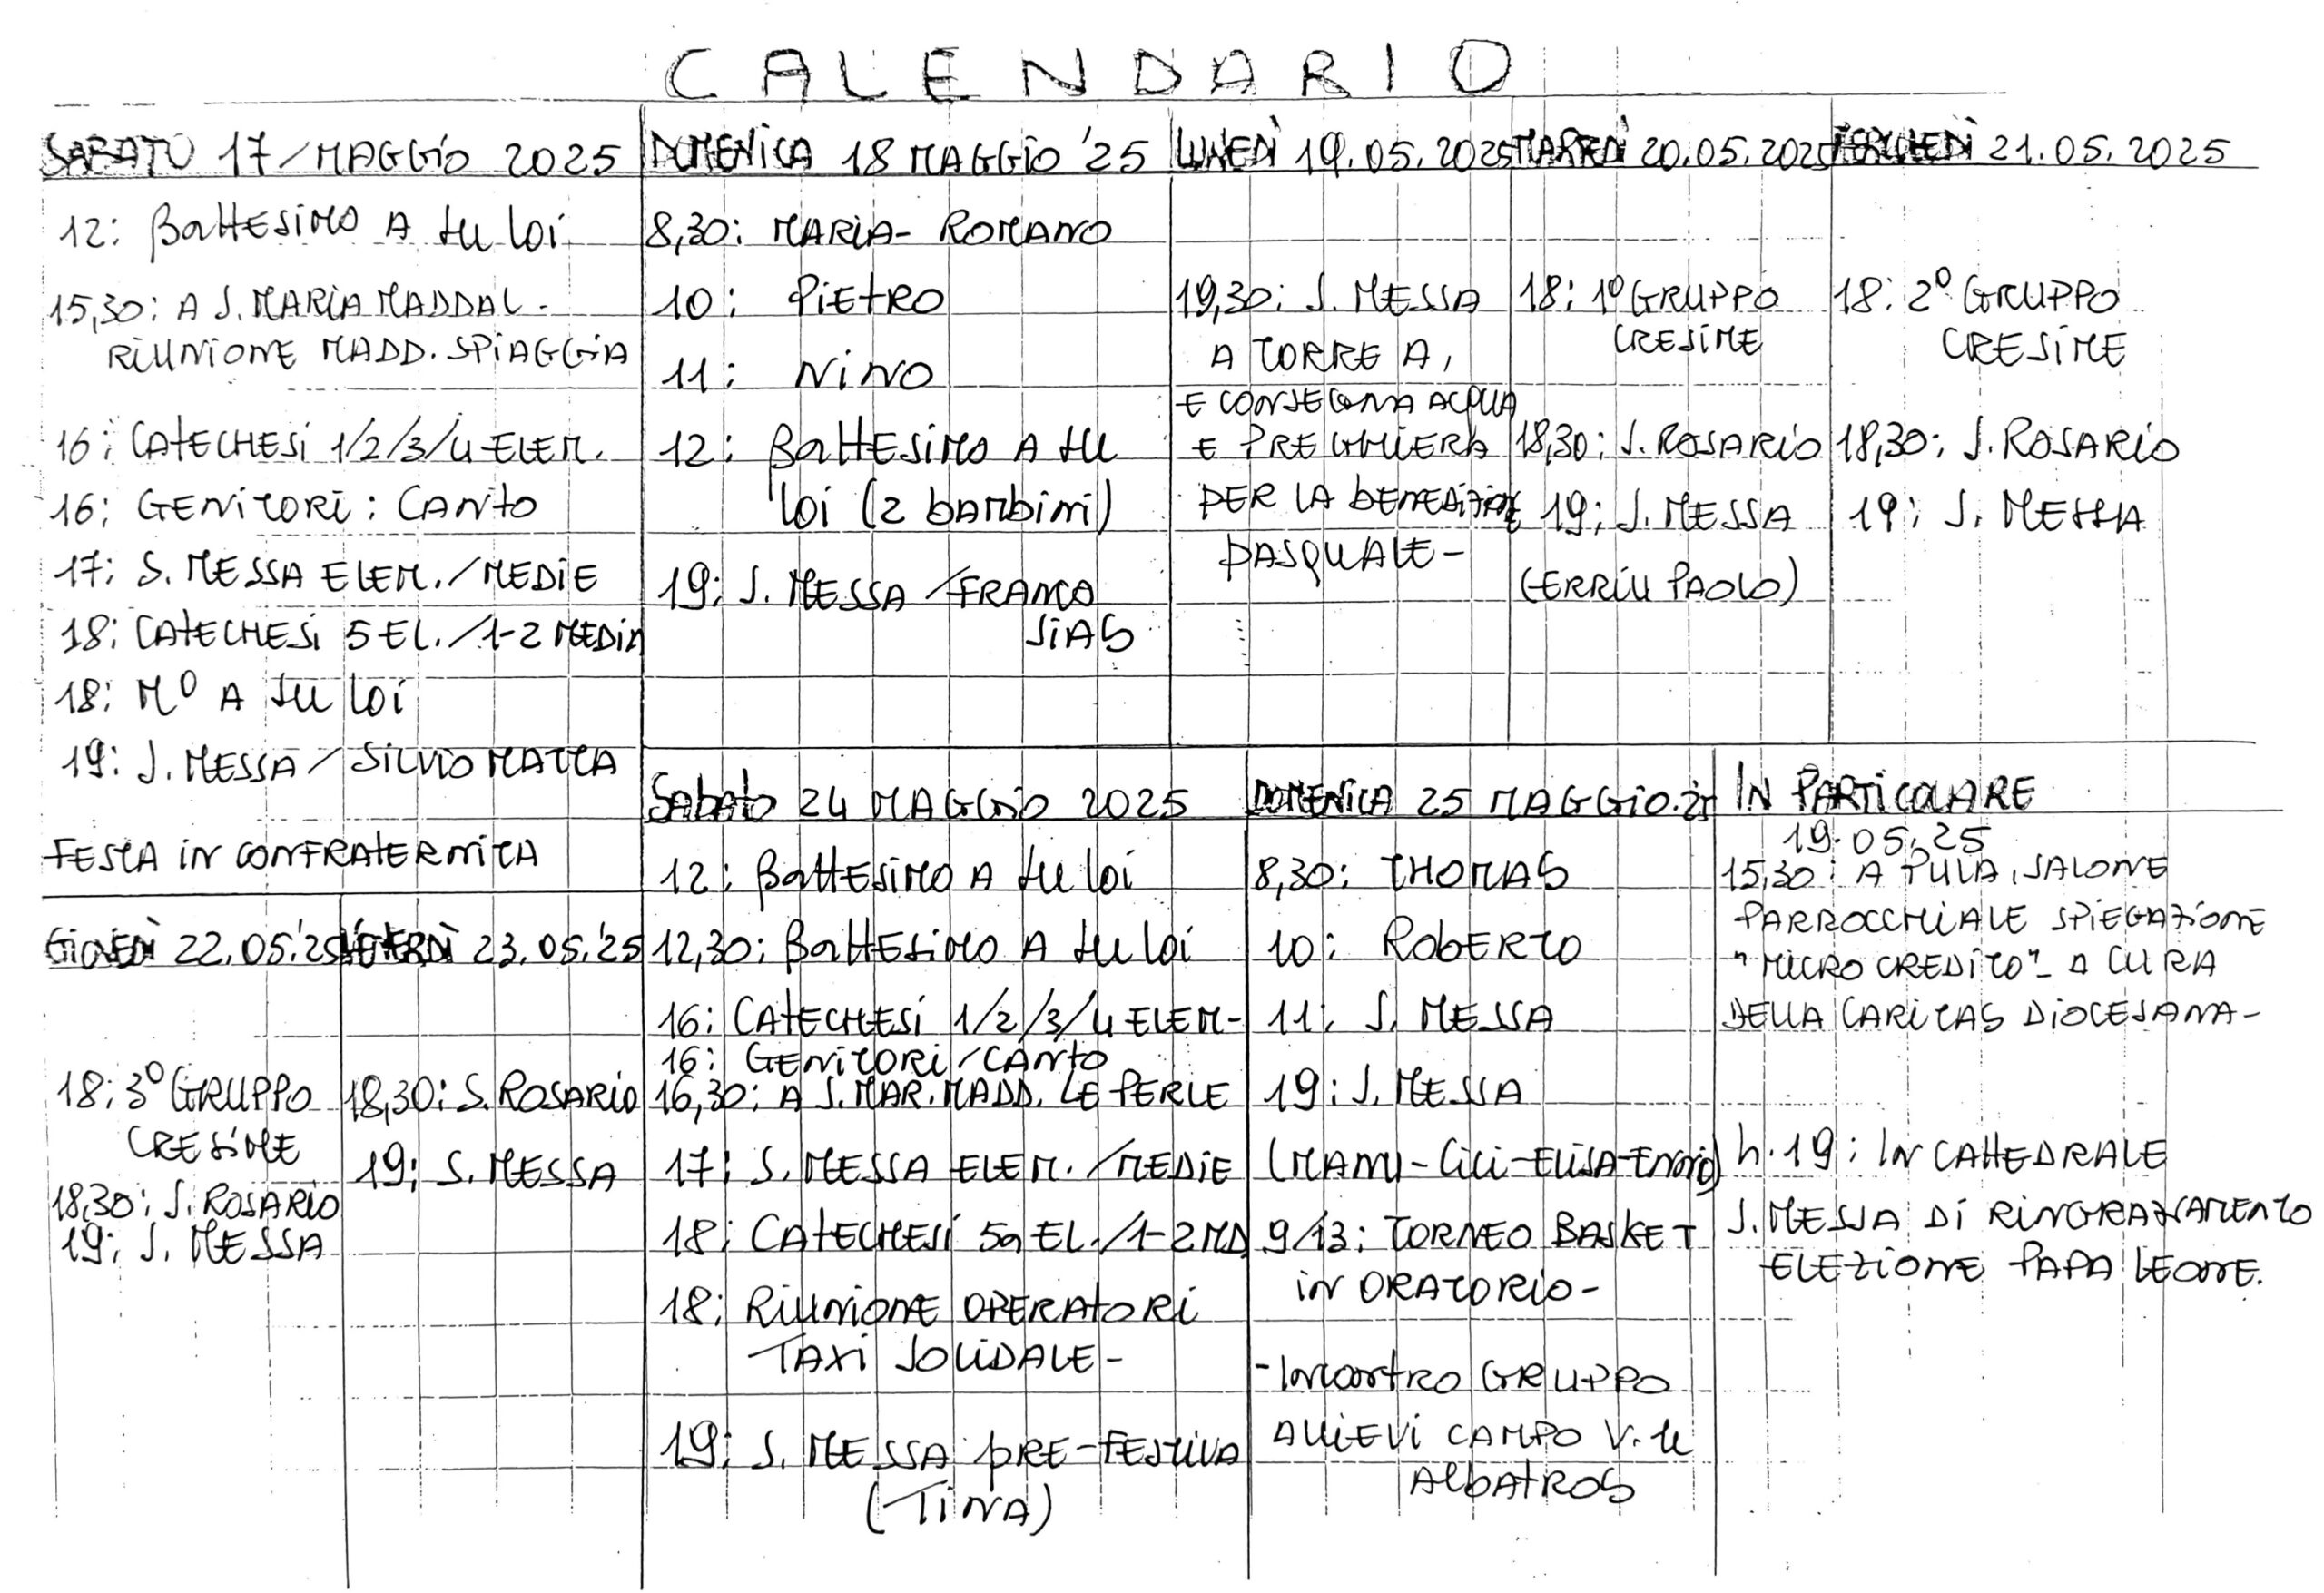 CALENDARIO
SABATO 17/MAGGIO 2025
12: BATTESIMO A SU LOI
15,30: A S. MARIA MADDAL-
RIUNIONE MADD. SPIAGGIA
16: CATECHESI 1/2/3/4 ELEM.
16: GENITORI: CANTO
17: S. MESSA ELEM./MEDIE
18: CATECHESI 5 EL./1-2 MEDIA
18: Mº A SU LOI
19: S. MESSA/SILVIO MATTA
FESTA IN CONFRATERNITA
DOMENICA 18 MAGGIO '25
8,30: MARIA-ROMANO
10: PIETRO
11: NINO
12: BATTESIMO A SU
LOI (2 BAMBINI)
19: S. MESSA/FRANCO
SIAS
LUNEDÌ 19.05.2025
19,30: S. MESSA
A TORRE A,
E CONSEGNA ACQUA
E PREGHIERA
PER LA BENEDIZIONE
PASQUALE-
MARTEDÌ 20.05.2025
18: 1º GRUPPO
CRESIME
18,30: S. ROSARIO
19: S. MESSA
(ERRIU PAOLO)
MERCOLEDÌ 21.05.2025
18: 2º GRUPPO
CRESIME
18,30: S. ROSARIO
19: S. MESSA
GIOVEDÌ 22.05.'25
18: 3º GRUPPO
CRESIME
18,30: S. ROSARIO
19: S. MESSA
VENERDÌ 23.05.'25
18,30: S. ROSARIO
19: S. MESSA
SABATO 24 MAGGIO 2025
12: BATTESIMO A SU LOI
12,30: BATTESIMO A SU LOI
16: CATECHESI 1/2/3/4 ELEM-
16: GENITORI/CANTO
16,30: A S. MAR. MADD. LE PERLE
17: S. MESSA ELEM./MEDIE
18: CATECHESI 5a EL./1-2 MD
18: RIUNIONE OPERATORI
TAXI SOLIDALE-
19: S. MESSA PRE-FESTIVA
(TINA)
DOMENICA 25 MAGGIO.25
8,30: THOMAS
10: ROBERTO
11: S. MESSA
19: S. MESSA
(MAMU-CICI-ELISA-ENNIO)
9/13: TORNEO BASKET
IN ORATORIO-
-INCONTRO GRUPPO
ALLIEVI CAMPO V.
ALBATROS
IN PARTICOLARE
19.05.25
15,30: A PULA, SALONE
PARROCCHIALE SPIEGAZIONE
"MICRO CREDITO"- A CURA
DELLA CARITAS DIOCESANA-
h.19: IN CATTEDRALE
S. MESSA DI RINGRAZIAMENTO
ELEZIONE PAPA LEONE.